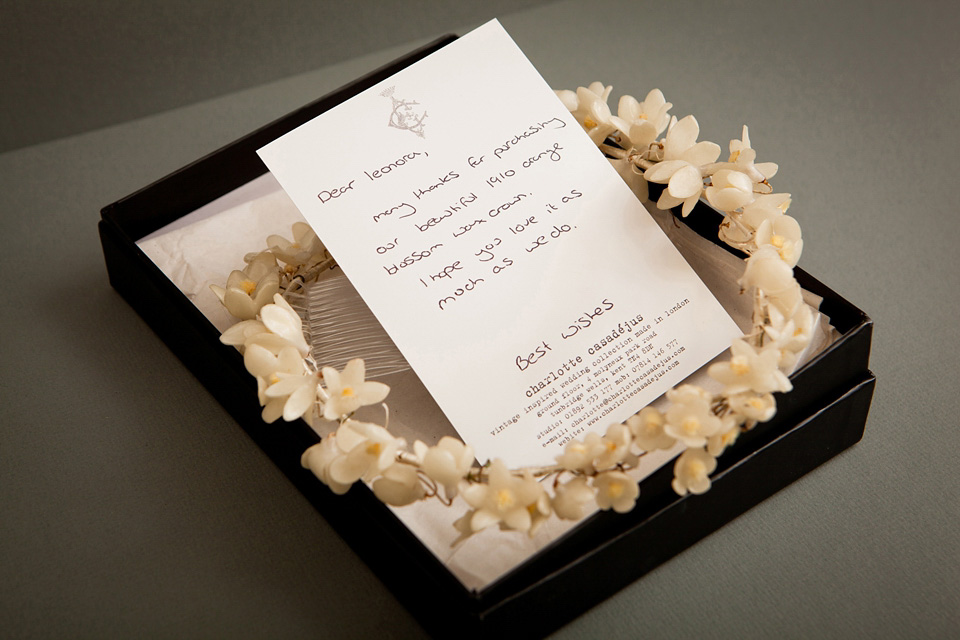 Dear leonora,
many thanks for purchasing
our beautiful 1910 orange
blossom wax crown.
I hope you love it as
much as we do.
Best wishes
charlotte casadéjus
vintage inspired wedding collection made in london
ground floor, 4 molyneux park road
tunbridge wells, kent TN4 8DN
studio: 01892 533 177 mob: 07814 146 577
e-mail: charlotte@charlottecasadejus.com
website: www.charlottecasadejus.com